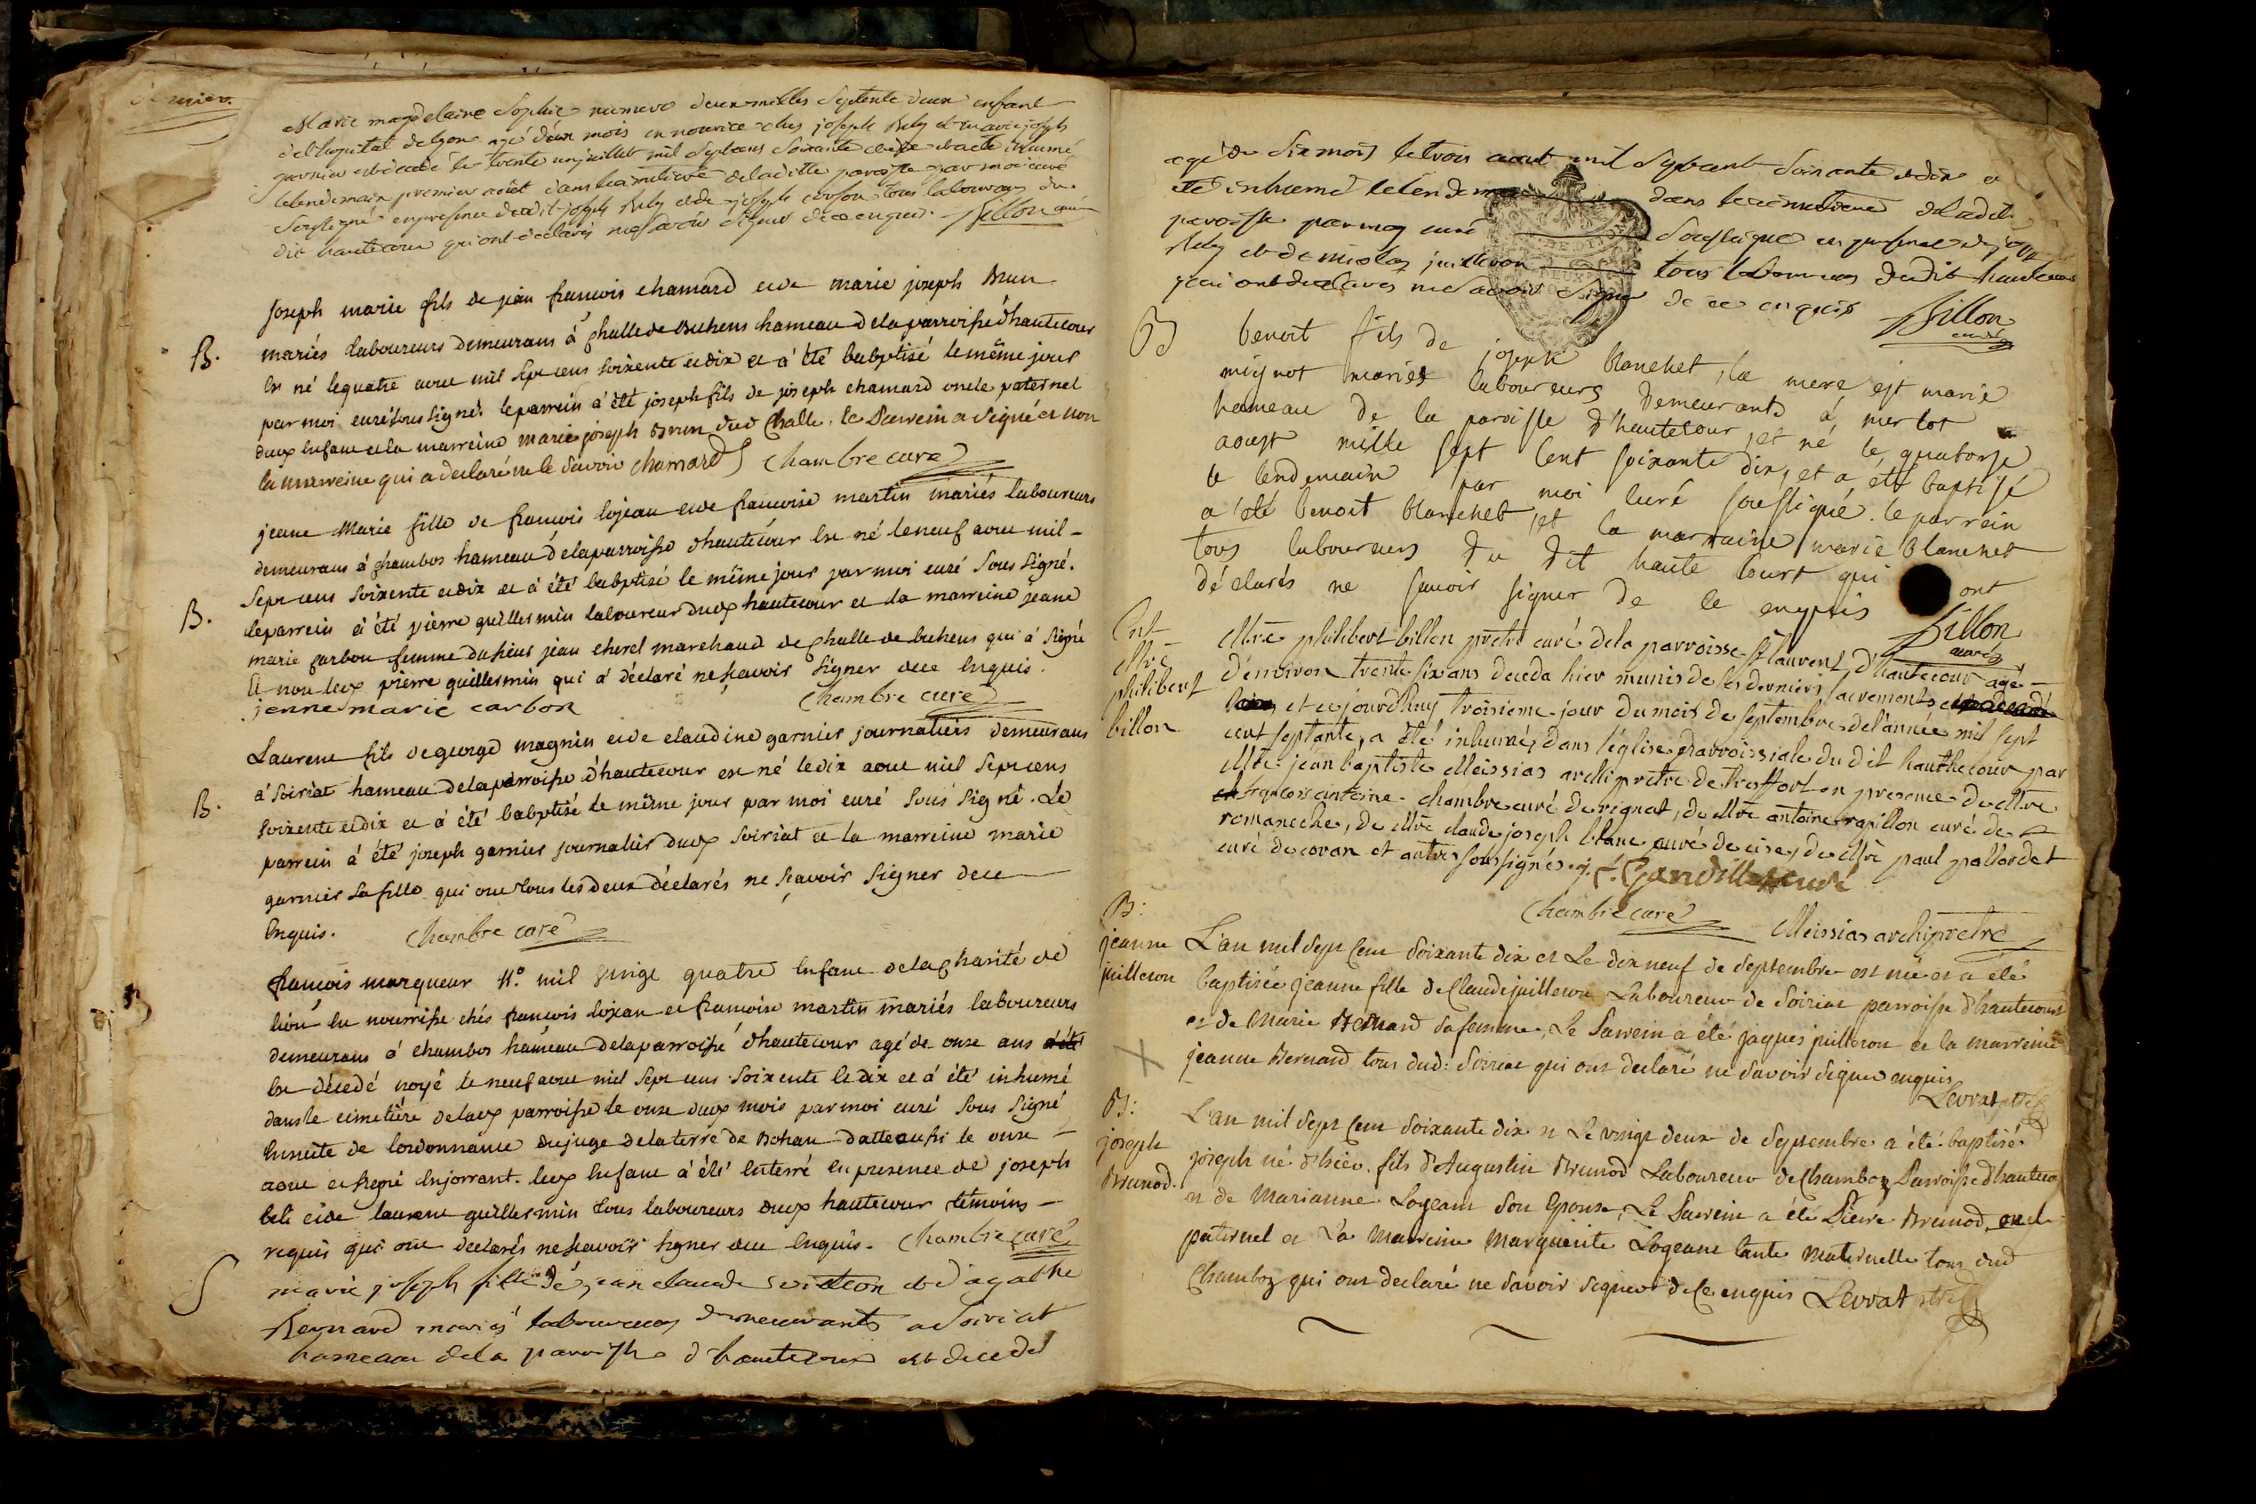 Marie magdelaine Sophie numero deux milles Septente deux enfant
de l'hopital de lyon agé deux mois en nourice chés joseph Rely et marie joseph
garnier est decedé le trente un juillet mil Sept cens Soixante et dix et a eté inhumé
le lendemain premier août dans le cimetiere de la ditte paroisse par moi curé
Soussigné en presence dudit joseph Rely et de joseph tous laboureurs du
dit hautecour qui ont déclarés ne Savoir Signer de ce enquis. Billon curé
B.
joseph marie fils de jean françois chamard et de marie joseph Brun
mariés laboureurs demeurans á challe de Buhens hameau de la parroisse d'hautecour
est né le quatre aout mil Sept cens soixente et dix et á été baptisé le même jour
par moi curé sous signé. le parrein á été joseph fils de joseph chamard oncle paternel
dud enfant et la marreine marie joseph Brun dud Challe. le Parrein a Signé et non
la marreine qui a declaré ne le Savoir chamard Chambre curé
B.
jeanne Marie fille de françois lojean et de françoise martin mariés laboureurs
demeurans á chambos hameau de la parroisse d'hautecour est né le neuf aout mil
Sept cens soixente et dix et á été baptisé le même jour par moi curé Sous Signé.
le parrein á été pierre guillesmin laboureur dud hautecour et la marreine jeane
marie carbon femme du sieur jean cherel marchand de challe de buhens qui á Signé
Et non led pierre guillesmin qui á déclaré ne sçavoir Signer de ce Enquis.
jenne marie carbon Chambre curé
B.
Laurent fils de george magnin et de claudine garnier journaliers demeurans
á Soiriat hameau de la parroisse d'hautecour est né le dix aout mil Sept cens
soixente et dix et á été baptisé le même jour par moi curé Sous Signé. Le
parrein á été joseph garnier journalier dud Soiriat et la marreine marie
garnier sa fille qui ont tous les deux déclarés ne sçavoir Signer de ce
Enquis. Chambre curé
françois marqueur N.º mil vingt quatre Enfant de la charité de
lion En nourrisse chés françois lojean et françoise martin mariés laboureurs
demeurans á chambos hameau de la parroisse d'hautecour agé de onse ans
Est décedé noyé le neuf aout mil Sept cens Soixente et dix et á été inhumé
dans le cimetière de lad parroisse le onse dud mois par moi curé Sous Signé
Ensuite de l'ordonnance du juge de la terre de Bohan datte aussi le onse
aout et Signé Enjorrant. led Enfant á été Enterré En presence de joseph
beli et de laurent guillermin tous laboureurs dud hautecour témoins
requis qui ont declarés ne sçavoir signer de ce Enquis. Chambre curé
S
marie joseph fille de jean claude et d'agathe
Bernard mariés laboureurs demeurants a Soiriat
hameau de la parroisse d'hautecour est decedé
agé de Six mois le trois aout mil Sept cent Soixante et dix a
été inhumé le lendemain dans le cimetiere de ladite
paroisse par moy curé Soussigné en presence de joseph
Rely et de nicolas juilleron tous laboureurs dudit hautecour
qui ont declarés ne Savoir Signer de ce enquis Billon curé
B
benoit fils de joseph blanchet, la mere est marie
mignot mariés laboureurs demeurants á merlot
hameau de la paroisse d'hautecour, et né le quatorse
aoust mille sept cent soixante dix, et a été baptisé
le lendemain par moi curé soussigné. le parrein
a été benoit blanchet, et la marraine marie blanchet
tous laboureurs du dit haute court qui ont
déclarés ne savoir signer de ce enquis Billon curé
Ent
Mre
philibert
billon
Mre philibert billon prêtre curé de la parroisse St laurent d'hautecour agé
d'environ trente six ans deceda hier munis de ses derniers sacrements
et ce jourdhuy troisieme jour du mois de septembre de l'année mil sept
cent septante, a été inhumé, dans l'église parroissiale du dit hauthecour par
Mre jean baptiste Meissias archiprêtre de treffort en presence de Mre
françois antoine chambre curé de rignat, de Mre antoine rapillon curé de
romaneche, de Mre claude joseph blanc curé de cise, de Mre paul pallordet
curé de coran et autres soussignés. Gandillet curé
Chambre curé Meissias archiprêtre
B:
jeanne
juilleron
L'an mil Sept Cent Soixante dix et Le dix neuf de Septembre est née et a été
baptisée jeanne fille de Claude juilleron Laboureur de Soiriat parroisse d'hautecourt
et de Marie Bernard sa femme, Le Parrein a été jaques juilleron et la marreine
jeanne Bernard tous dud: Soiriat qui ont declaré ne Savoir Signer enquis
Levrat ptre
B:
joseph
Brunod.
L'an mil Sept Cent Soixante dix et Le vingt deux de Septembre a été baptisé
joseph né d'hier. fils d'Augustin Brunod Laboureur de Chamboz Parroisse d'hautecour
et de Marianne Logean son Epouse, Le Parrein a été Pierre Brunod, oncle
paternel et La Marreine Marguerite Logeant tante Maternelle tous dud
Chamboz qui ont declaré ne Savoir Signer de Ce enquis Levrat ptre